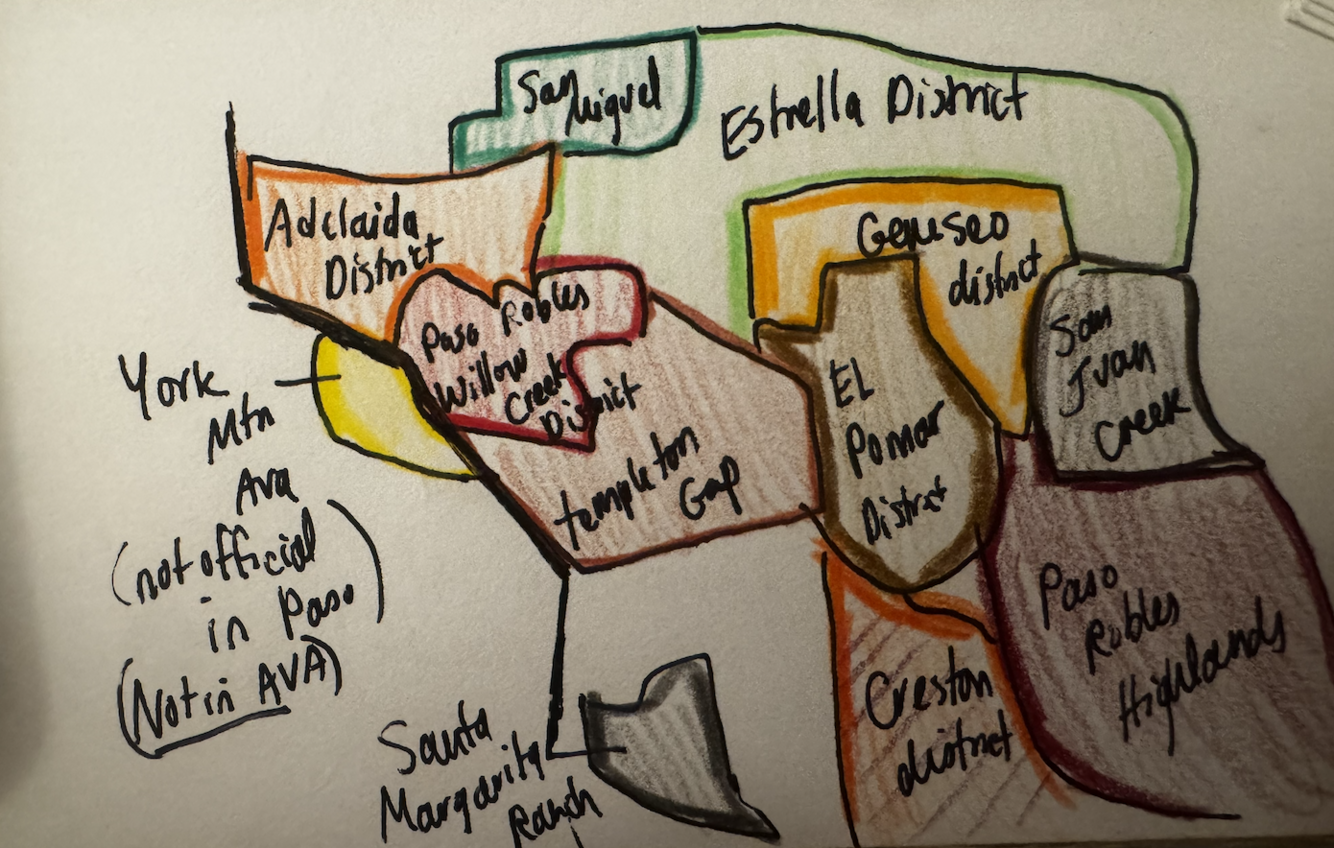 San
Miguel
Estrella District
Adelaida
District
Geneseo
district
Paso Robles
Willow
Creek
District
San
Juan
Creek
York
Mtn
Ava
(not official
in Paso)
(Not in AVA)
EL
Pomar
District
templeton
Gap
Paso
Robles
Highlands
Creston
district
Santa
Margarita
Ranch